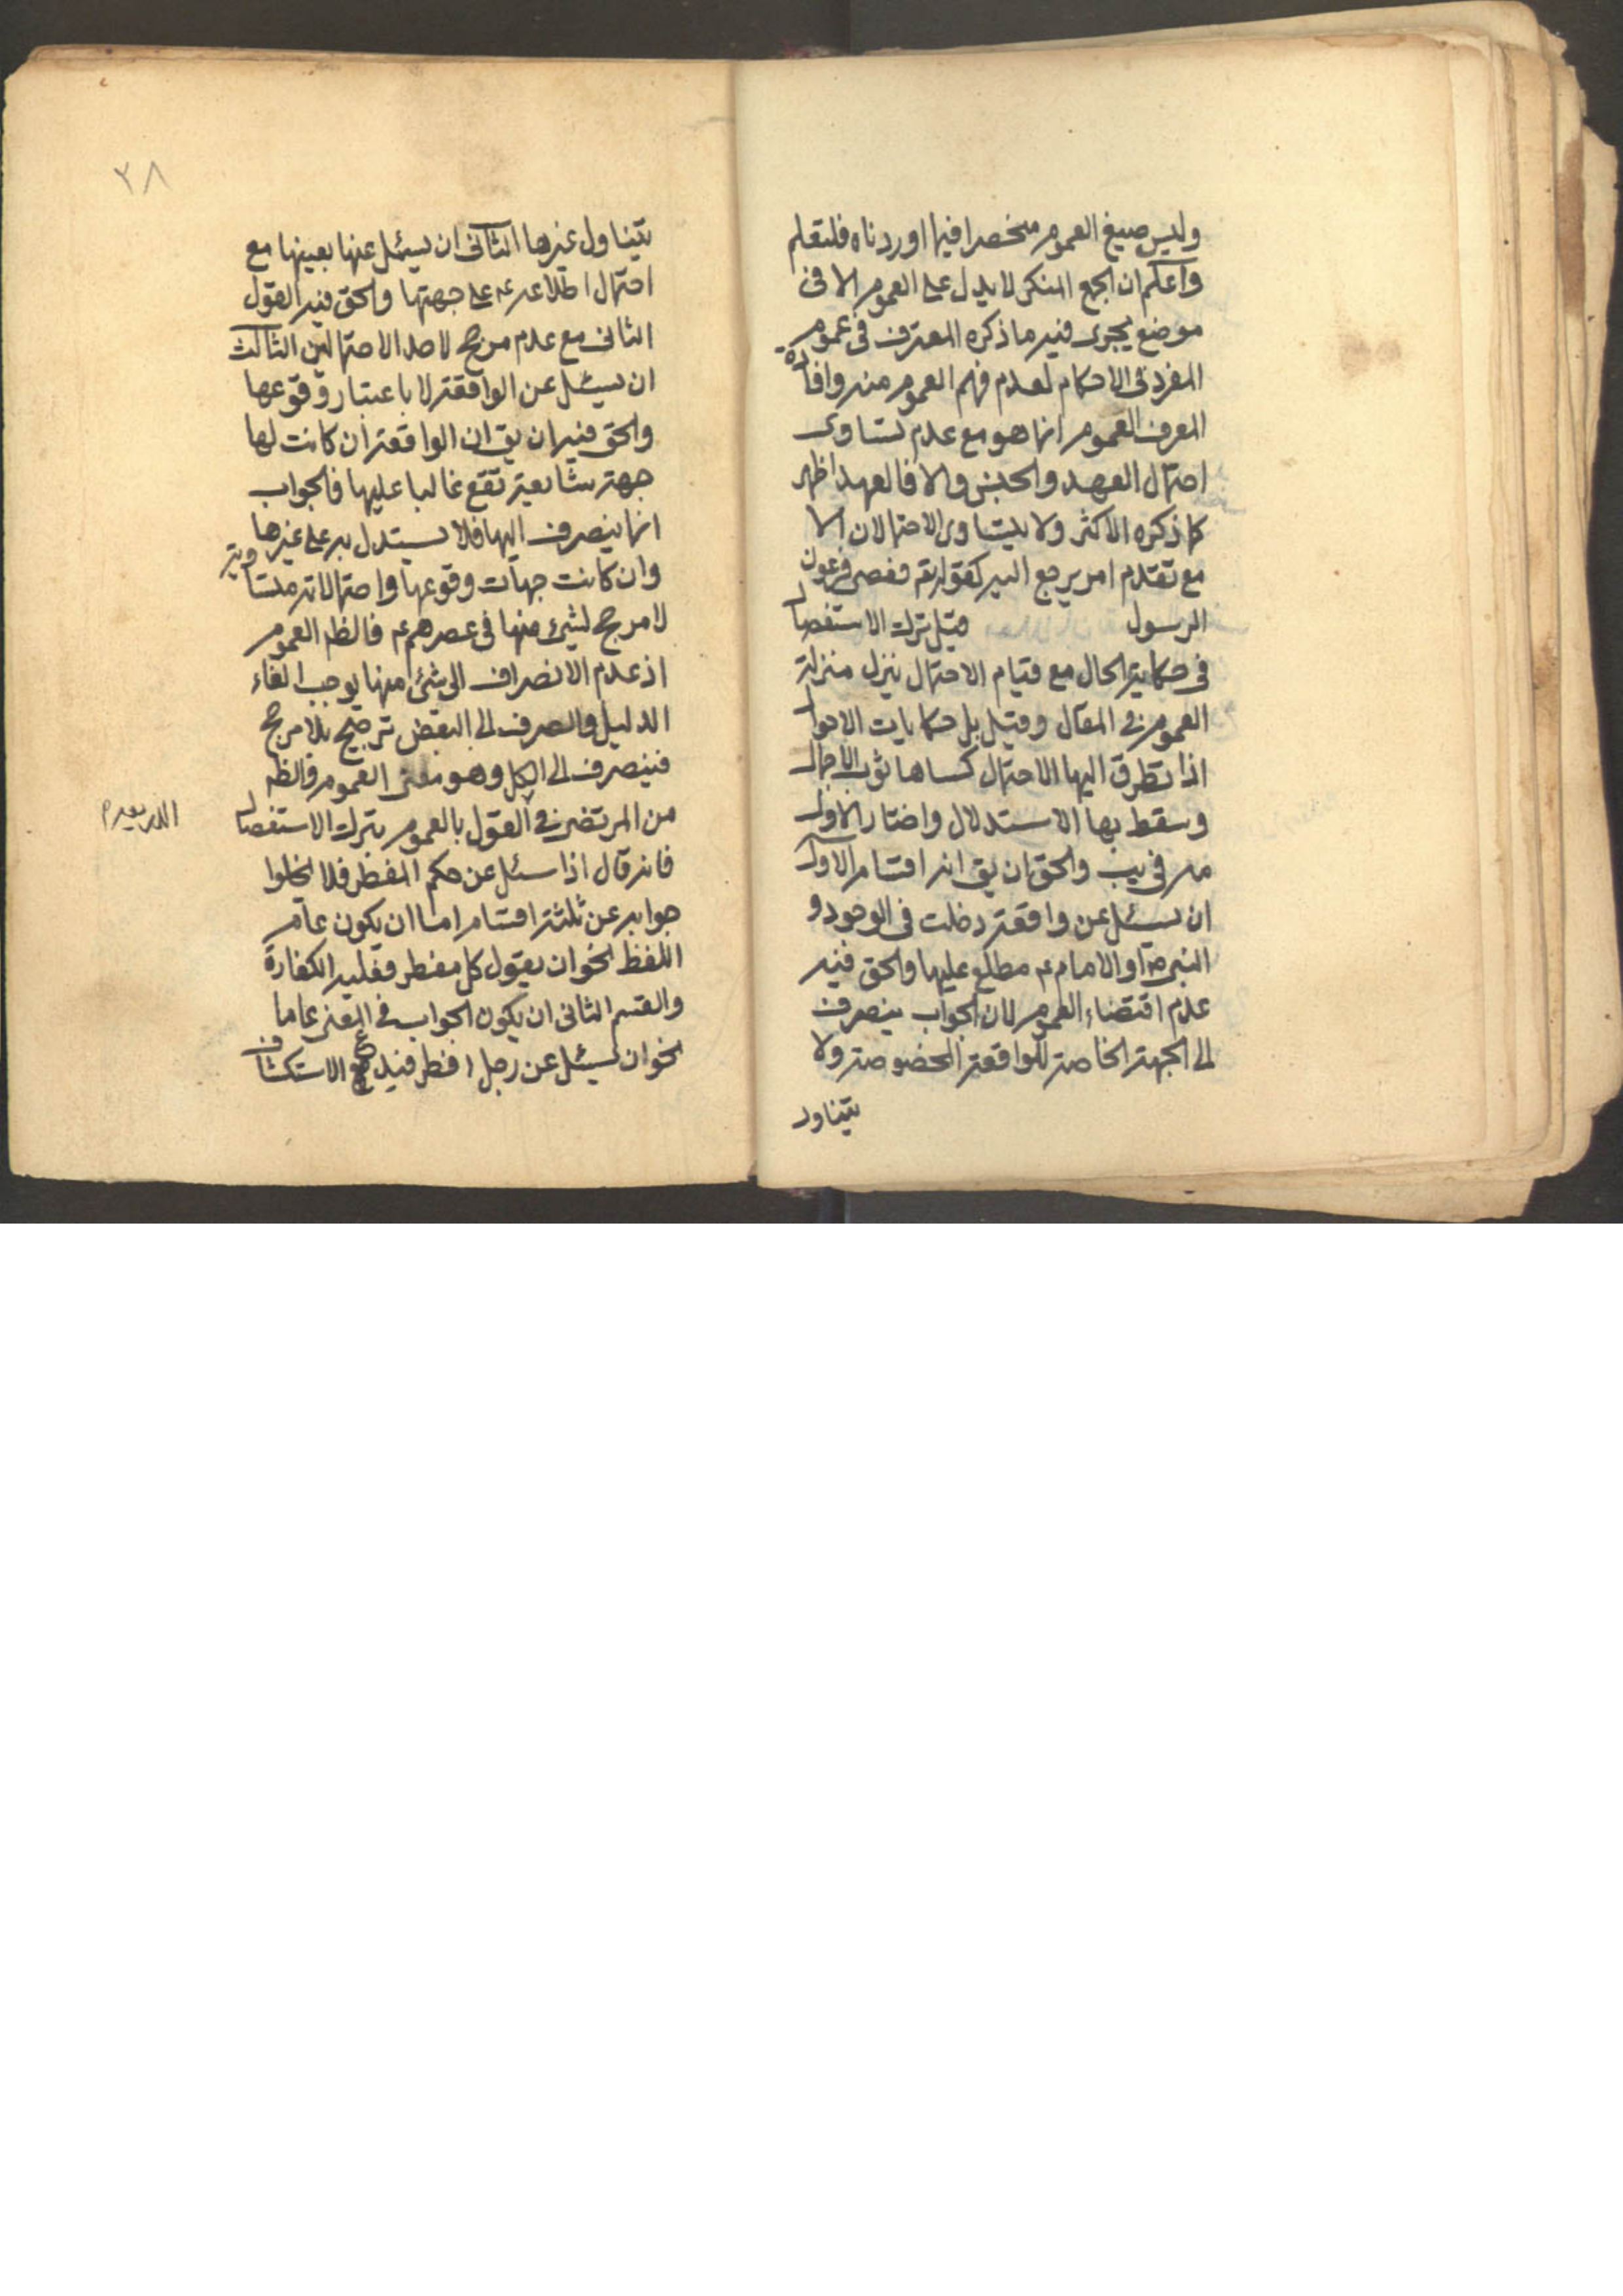 وليس صيغ العموم منحصرا فيما اوردناه فلتعلم
واعلم ان الجمع المنكر لا يدل على العموم الا فى
موضع يجرى فيه ما ذكره المعترف فى عموم
المفرد فى الاحكام لعدم فهم العموم منه وافادة
المعرف العموم انما هو مع عدم تساوى
احتمال العهد والجنس والا فالعهد اظهر
كما ذكره الاكثر ولا يتساوى الاحتمالان الا
مع تقدم امر يرجع اليه كقوله تعم فعصى فرعون
الرسول قيل ترك الاستفصال
فى حكاية الحال مع قيام الاحتمال ينزل منزلة
العموم فى المقال وقيل بل حكايات الاحوال
اذا تطرق اليها الاحتمال كساها ثوب الاجمال
وسقط بها الاستدلال واختار الاول
مه فى يب والحق ان يق انه اقسام الاول
ان يسئل عن واقعة دخلت فى الوجود و
النبى ص او الامام ع مطلع عليها والحق فيه
عدم اقتضاء العموم لان الجواب ينصرف
الى الجهة الخاصة للواقعة المخصوصة ولا
يتناول
٢٨
يتناول غيرها الثانى ان يسئل عنها بعينها مع
احتمال اطلاعه ع على جهتها والحق فيه القول
الثانى مع عدم مرجح لاحد الاحتمالين الثالث
ان يسئل عن الواقعة لا باعتبار وقوعها
والحق فيه ان يق ان الواقعة ان كانت لها
جهة شايعة تقع غالبا عليها فالجواب
انما ينصرف اليها فلا يستدل به على غيرها
وان كانت جهات وقوعها واحتمالاته متساوية
لا مرجح لشئ منها فى عصرهم ع فالظ العموم
اذ عدم الانصراف الى شئ منها يوجب الغاء
الدليل والصرف الى البعض ترجيح بلا مرجح
فينصرف الى الكل وهو معنى العموم والظ
من المرتضى فى القول بالعموم بترك الاستفصال
الذريعة
فانه قال اذا سئل عن حكم المفطر فلا يخلوا
جوابه عن ثلثة اقسام اما ان يكون عام
اللفظ نحو ان يقول كل مفطر فعليه الكفارة
والقسم الثانى ان يكون الجواب فى المعنى عاما
نحو ان يسئل عن رجل افطر فيدع الاستكشاف